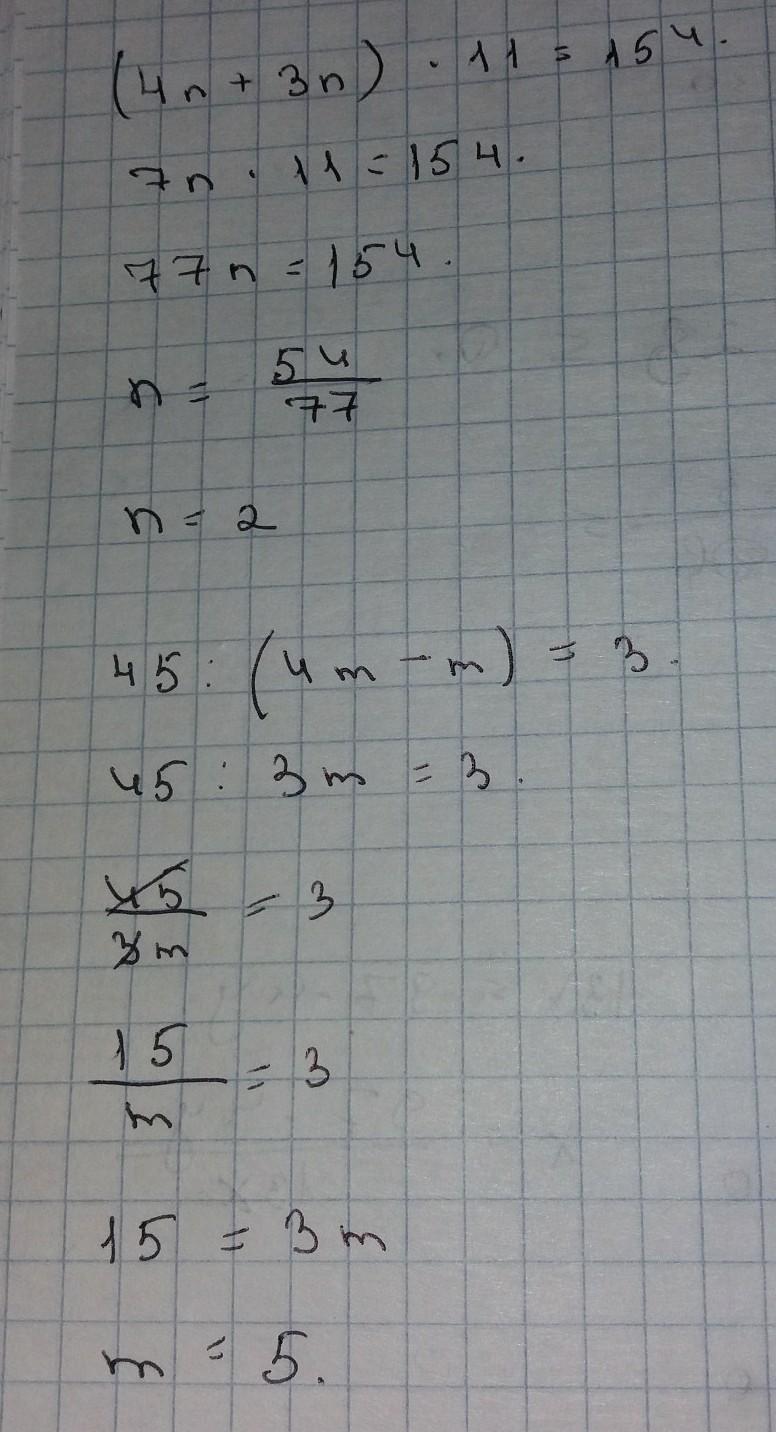 (4n + 3n) · 11 = 154.
7n · 11 = 154.
77n = 154.
n = 54/77
n = 2
45 : (4m - m) = 3.
45 : 3m = 3.
45/3m = 3
15/m = 3
15 = 3m
m = 5.